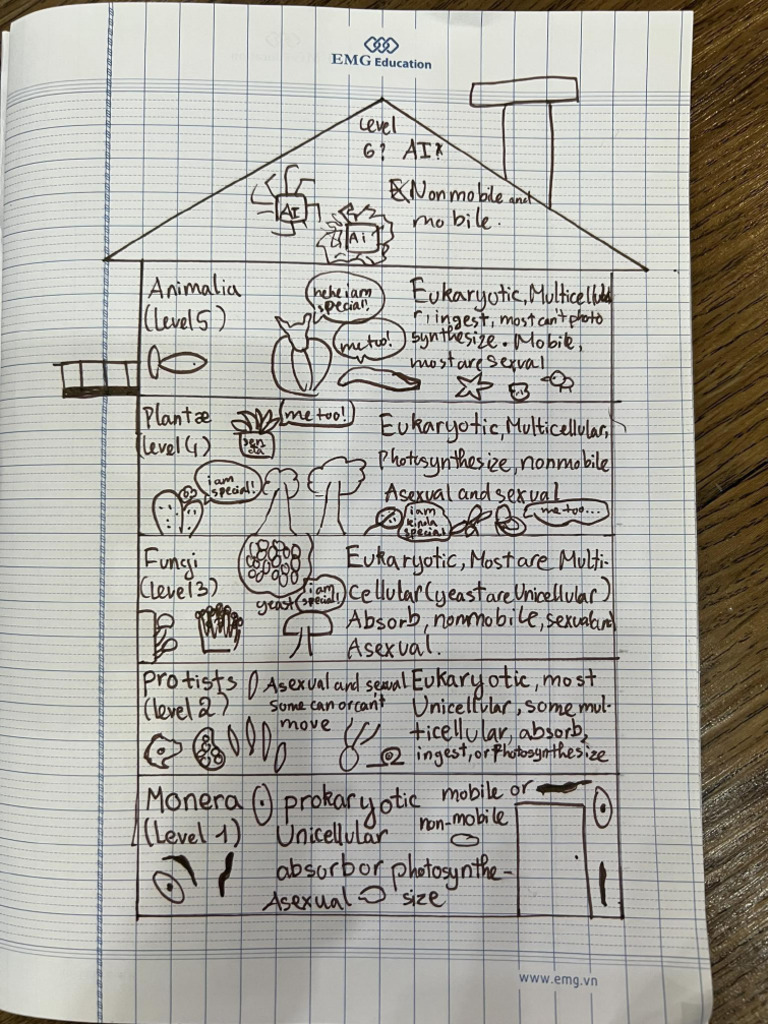 EMG Education
Level
6? AI?
AI
Ai
Nonmobile and
mobile.
Animalia
(Level 5)
hehe i am
special!
me too!
Eukaryotic, Multicellula
r, ingest, most can't photo
synthesize. Mobile,
most are sexual
Plantae
(level 4)
me too!
i am
special!
Eukaryotic, Multicellular,
Photosynthesize, nonmobile
Asexual and sexual
i am
kinda
special
me too...
Fungi
(Level 3)
yeast
i am
special!
Eukaryotic, Most are Multi-
cellular (yeast are Unicellular)
Absorb, nonmobile, sexual and
Asexual.
Protists
(level 2)
Asexual and sexual
some can or cant
move
Eukaryotic, most
Unicellular, some mul-
ticellular, absorb,
ingest, or Photosynthesize
Monera
(Level 1)
prokaryotic
Unicellular
mobile or
non-mobile
absorb or photosynthe-
size
Asexual
www.emg.vn